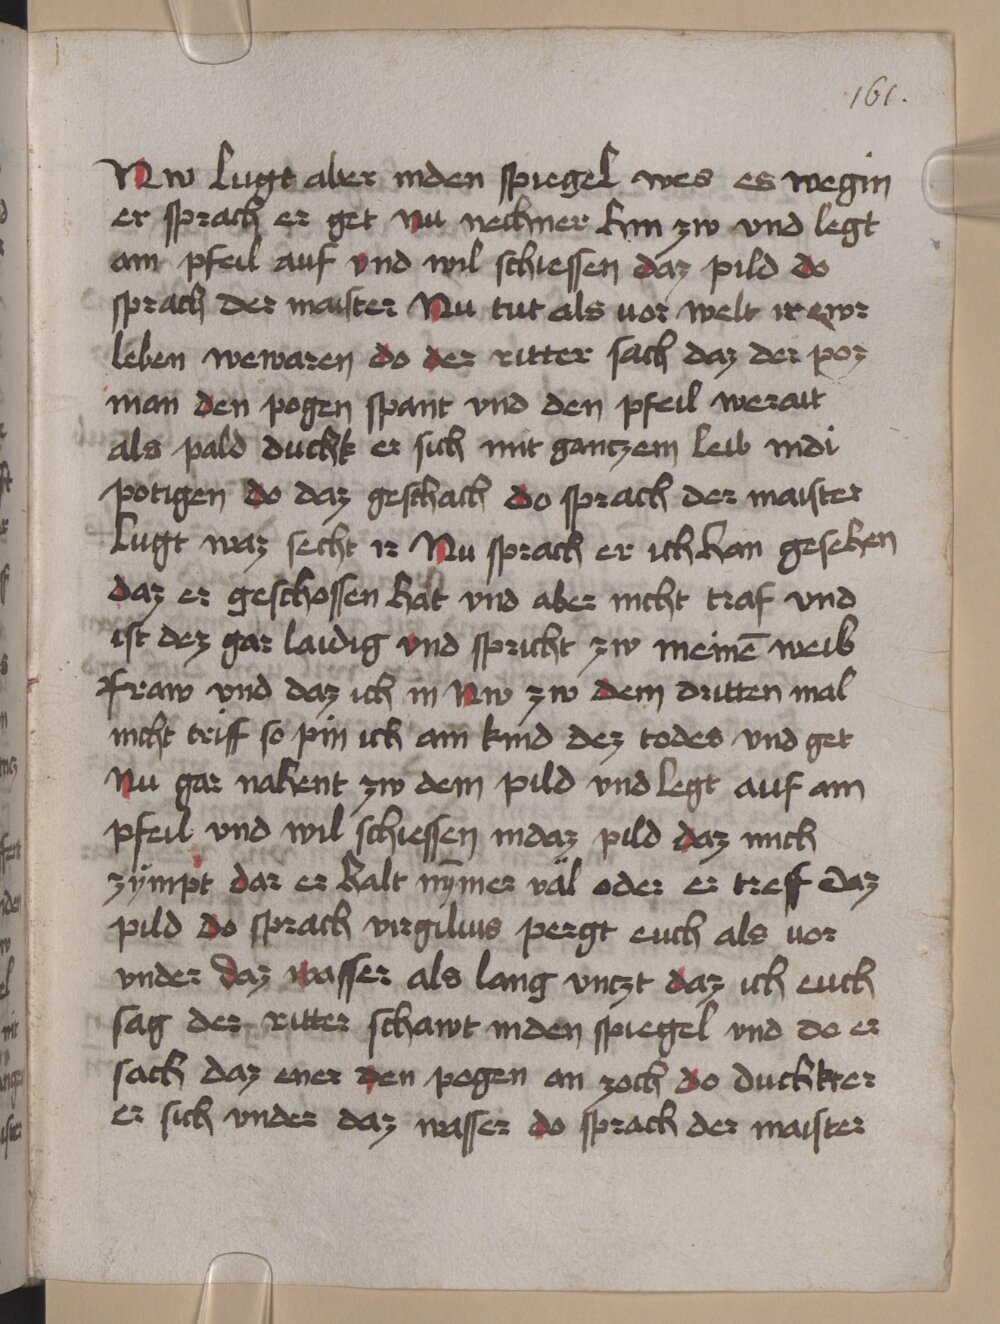 161.
Nw lugt aber inden spiegel wes es wegin
er sprach er get nu nechner hin zw vnd legt
ain pfeil auf vnd wil schiessen daz pild do
sprach der maister Nu tut als vor welt ir ewr
leben wewaren do der ritter sach daz der poz
man den pogen spant vnd den pfeil werait
als pald duckt er sich mit gantzem leib indi
potigen do daz geschach do sprach der maister
lugt waz secht ir Nu sprach er ich han gesehen
daz er geschossen hat vnd aber nicht traf vnd
ist dez gar laidig vnd spricht zw meinē weib
fraw vnd daz ich in Nw zw dem dritten mal
nicht triff so pin ich ain kind dez todes vnd get
Nu gar nahent zw dem pild vnd legt auf ain
pfeil vnd wil schiessen indaz pild daz mich
zÿmpt dar er halt nȳmer väl oder er treff daz
pild do sprach virgilius pergt euch als vor
vnder daz wasser als lang vnczt daz ich euch
sag der ritter schawt inden spiegel vnd do er
sach daz ener den pogen an zoch do duckhter
er sich vnder daz wasser do sprach der maister